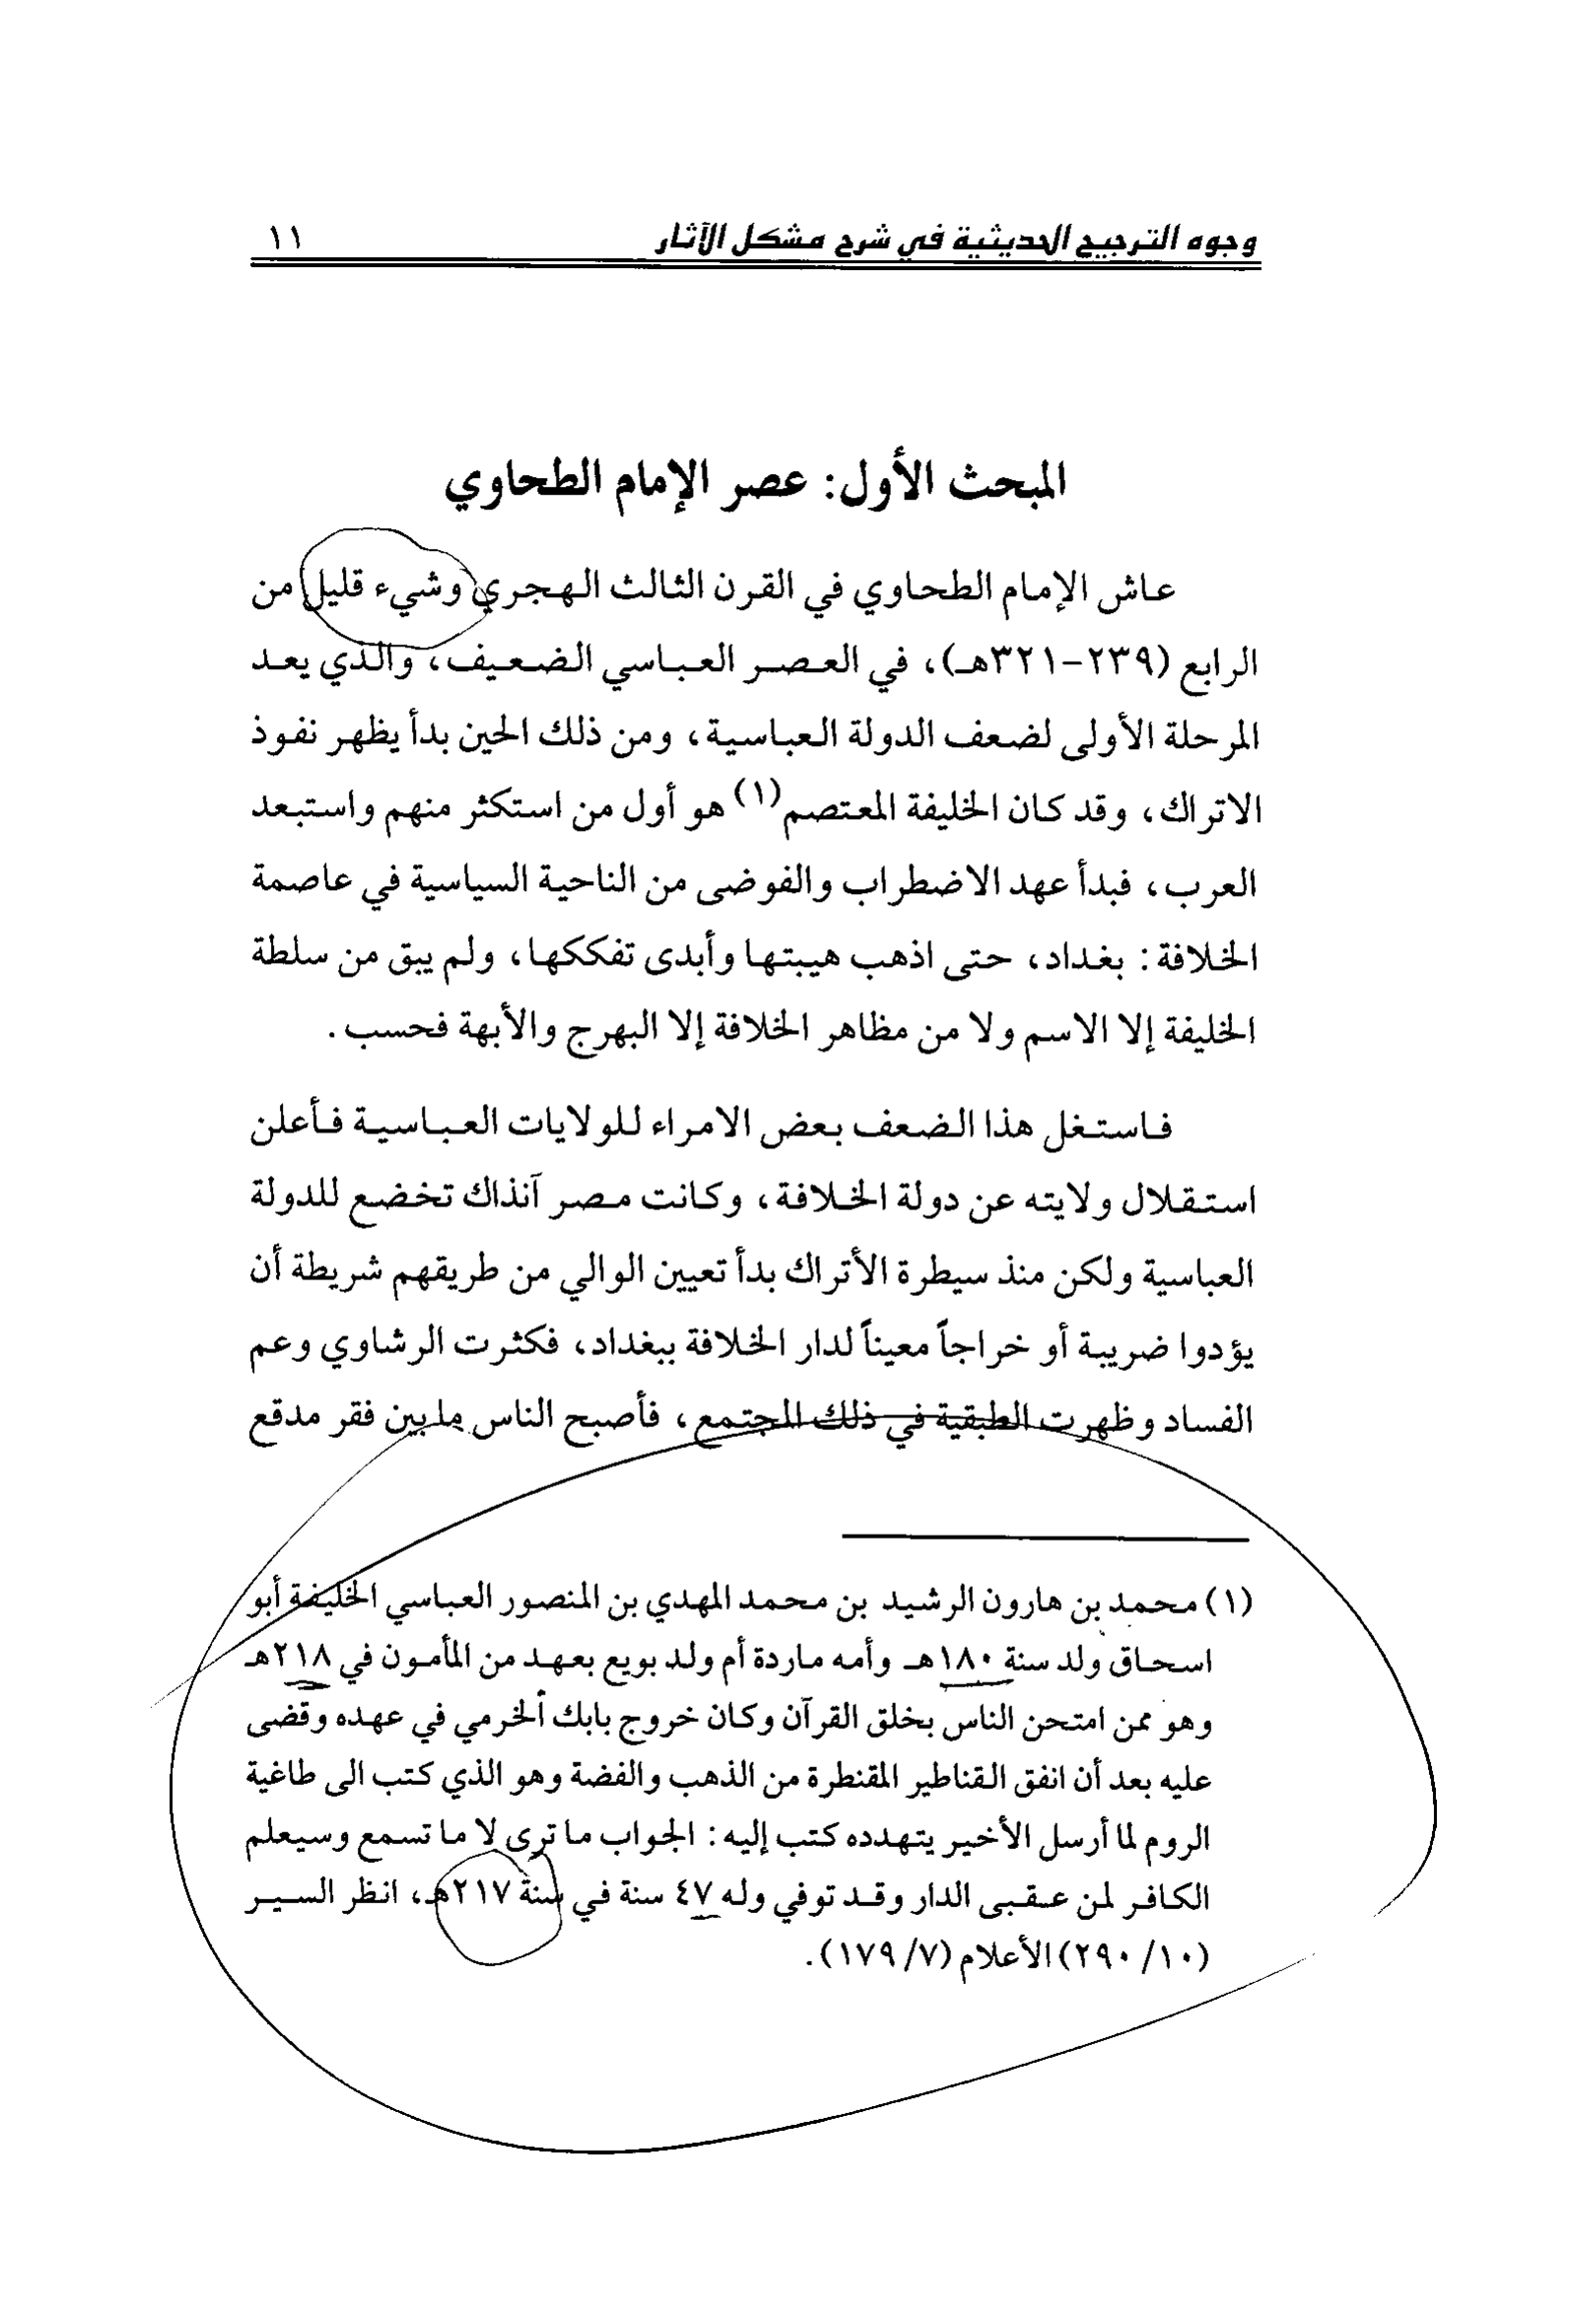 وجوه الترجيح الحديثية في شرح مشكل الآثار ١١
المبحث الأول: عصر الإمام الطحاوي
عاش الإمام الطحاوي في القرن الثالث الهجري وشيء قليل من
الرابع (٢٣٩-٣٢١هـ)، في العصر العباسي الضعيف، والذي يعد
المرحلة الأولى لضعف الدولة العباسية، ومن ذلك الحين بدأ يظهر نفوذ
الاتراك، وقد كان الخليفة المعتصم(١) هو أول من استكثر منهم واستبعد
العرب، فبدأ عهد الاضطراب والفوضى من الناحية السياسية في عاصمة
الخلافة: بغداد، حتى اذهب هيبتها وأبدى تفككها، ولم يبق من سلطة
الخليفة إلا الاسم ولا من مظاهر الخلافة إلا البهرج والأبهة فحسب.
فاستغل هذا الضعف بعض الامراء للولايات العباسية فأعلن
استقلال ولايته عن دولة الخلافة، وكانت مصر آنذاك تخضع للدولة
العباسية ولكن منذ سيطرة الأتراك بدأ تعيين الوالي من طريقهم شريطة أن
يؤدوا ضريبة أو خراجاً معيناً لدار الخلافة ببغداد، فكثرت الرشاوي وعم
الفساد وظهرت الطبقية في ذلك المجتمع، فأصبح الناس ما بين فقر مدقع
(١) محمد بن هارون الرشيد بن محمد المهدي بن المنصور العباسي الخليفة أبو
اسحاق ولد سنة ١٨٠هـ وأمه ماردة أم ولد بويع بعهد من المأمون في ٢١٨هـ
وهو ممن امتحن الناس بخلق القرآن وكان خروج بابك الخرمي في عهده وقضى
عليه بعد أن انفق القناطير المقنطرة من الذهب والفضة وهو الذي كتب الى طاغية
الروم لما أرسل الأخير يتهدده كتب إليه: الجواب ما ترى لا ما تسمع وسيعلم
الكافر لمن عقبى الدار وقد توفي وله ٤٧ سنة في سنة ٢١٧هـ، انظر السير
(١٠/ ٢٩٠) الأعلام (٧/ ١٧٩).